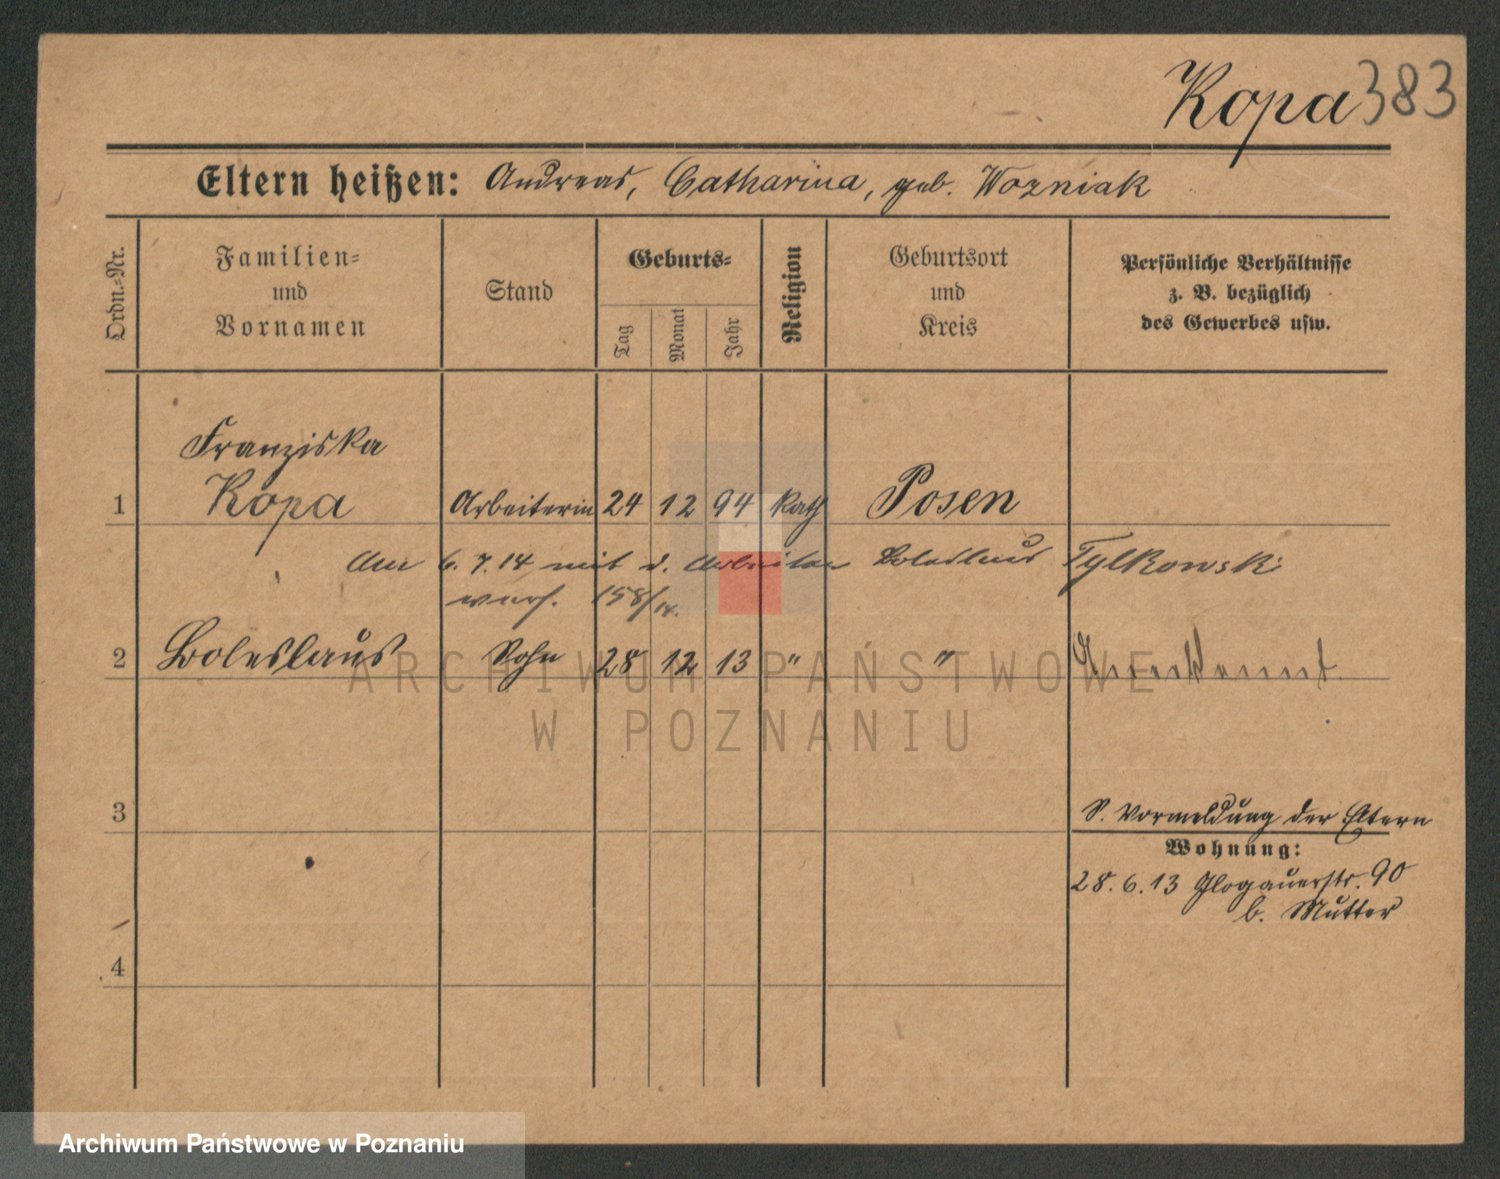 Kopa 383
Eltern heißen: Andreas, Catharina, geb. Wozniak
Ordn.-Nr.
Familien-
und
Vornamen
Stand
Geburts-
Tag
Monat
Jahr
Religion
Geburtsort
und
Kreis
Persönliche Verhältnisse
z. B. bezüglich
des Gewerbes usw.
Franziska
1 Kopa Arbeiterin 24 12 94 kath Posen
Am 6. 7. 14 mit d. Arbeiter Boleslaus Tylkowski
verh. 158/14.
2 Boleslaus Sohn 28 12 13 " " Anerkannt
ARCHIWUM PAŃSTWOWE
W POZNANIU
3
S. Vormeldung der Eltern
Wohnung:
28. 6. 13 Glogauerstr. 90
b. Mutter
4
Archiwum Państwowe w Poznaniu